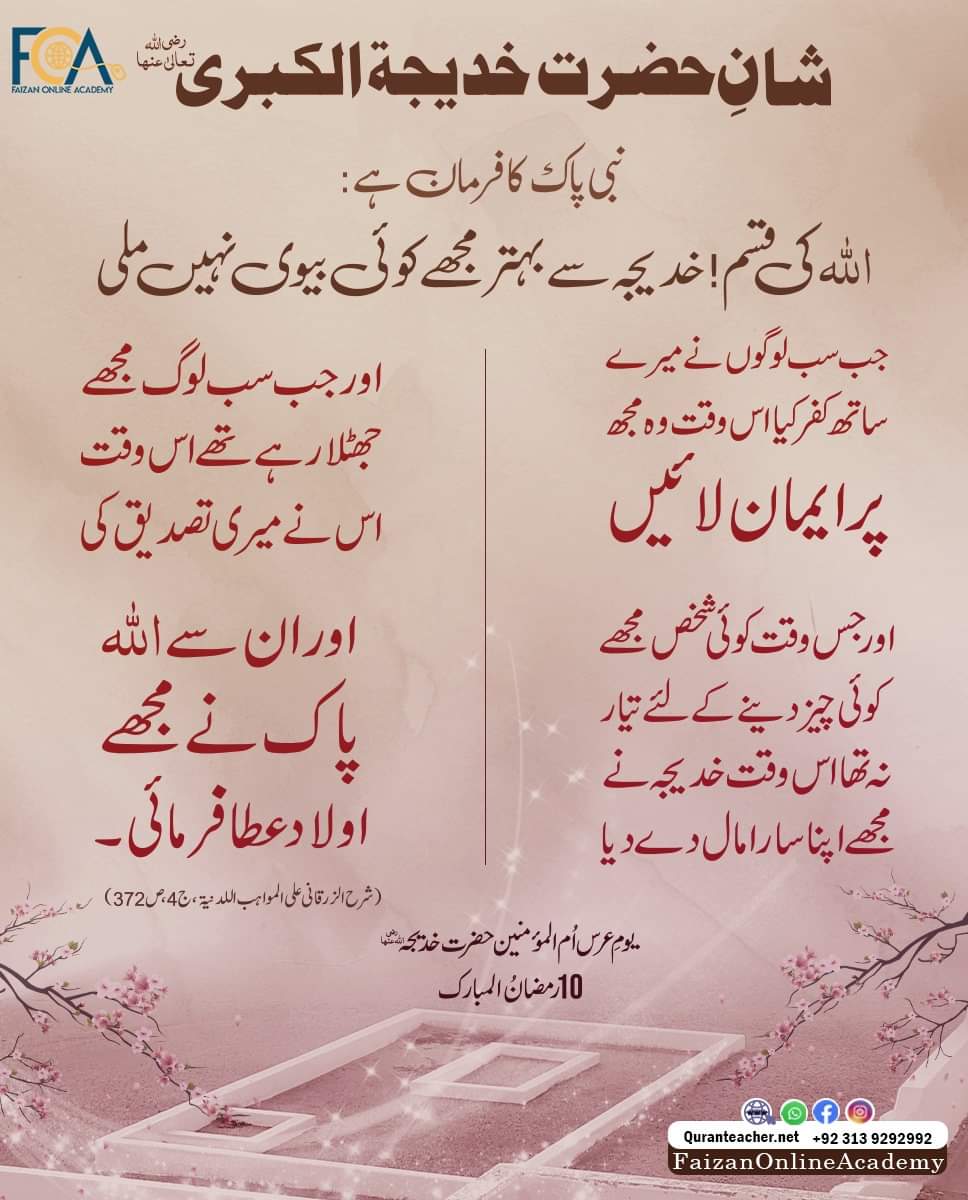 FCA
FAIZAN ONLINE ACADEMY
شانِ حضرت خدیجۃ الکبری رضی اللہ تعالیٰ عنہا
نبی پاک کا فرمان ہے:
اللہ کی قسم! خدیجہ سے بہتر مجھے کوئی بیوی نہیں ملی
جب سب لوگوں نے میرے
ساتھ کفر کیا اس وقت وہ مجھ
پر ایمان لائیں
اور جب سب لوگ مجھے
جھٹلا رہے تھے اس وقت
اس نے میری تصدیق کی
اور جس وقت کوئی شخص مجھے
کوئی چیز دینے کے لئے تیار
نہ تھا اس وقت خدیجہ نے
مجھے اپنا سارا مال دے دیا
اور ان سے اللہ
پاک نے مجھے
اولاد عطا فرمائی۔
(شرح الزرقانی علی المواہب اللدنیۃ، ج4، ص372)
یومِ عرس اُم المؤمنین حضرت خدیجہ رضی اللہ عنہا
10 رمضانُ المبارک
Quranteacher.net +92 313 9292992
FaizanOnlineAcademy